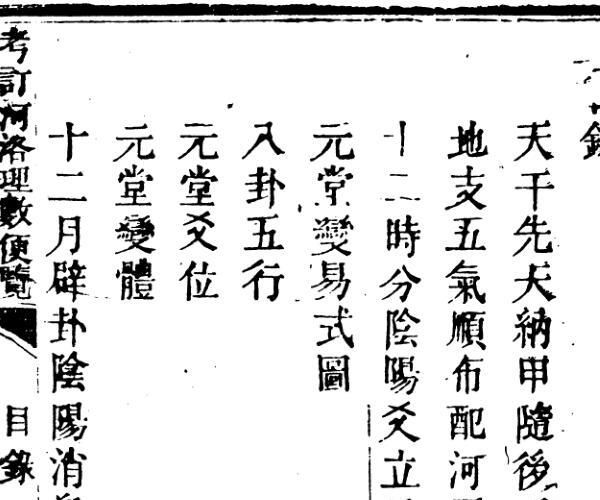 錄
天干先天納甲隨後
地支五氣順布配河
十二時分陰陽爻立
元堂變易式圖
八卦五行
元堂爻位
元堂變體
十二月辟卦陰陽消
考訂河洛理數便覽
目錄